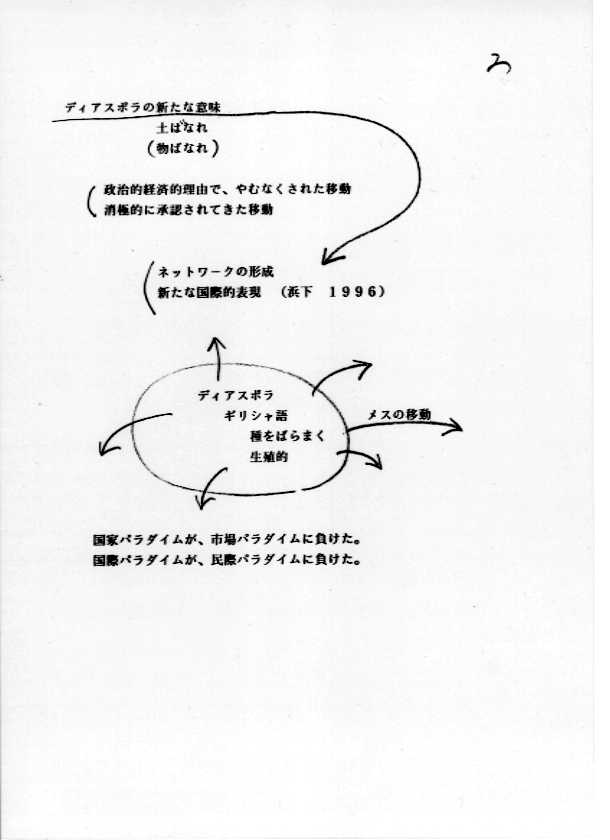 ディアスポラの新たな意味
土ばなれ
(物ばなれ)
政治的経済的理由で、やむなくされた移動
消極的に承認されてきた移動
ネットワークの形成
新たな国際的表現 (浜下 1996)
ディアスポラ
ギリシャ語
種をばらまく
生殖的
メスの移動
国家パラダイムが、市場パラダイムに負けた。
国際パラダイムが、民際パラダイムに負けた。